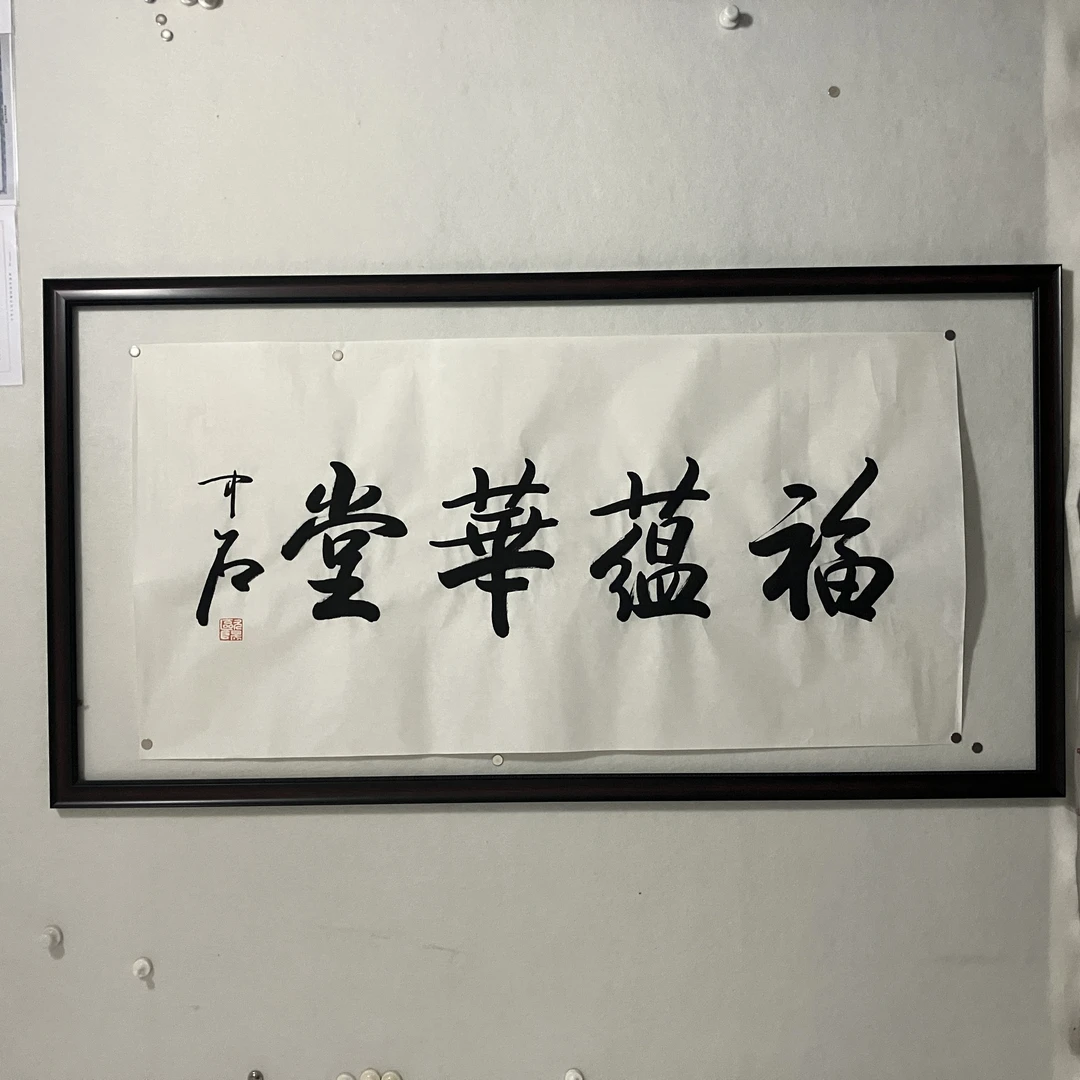 福蕴華堂
中石